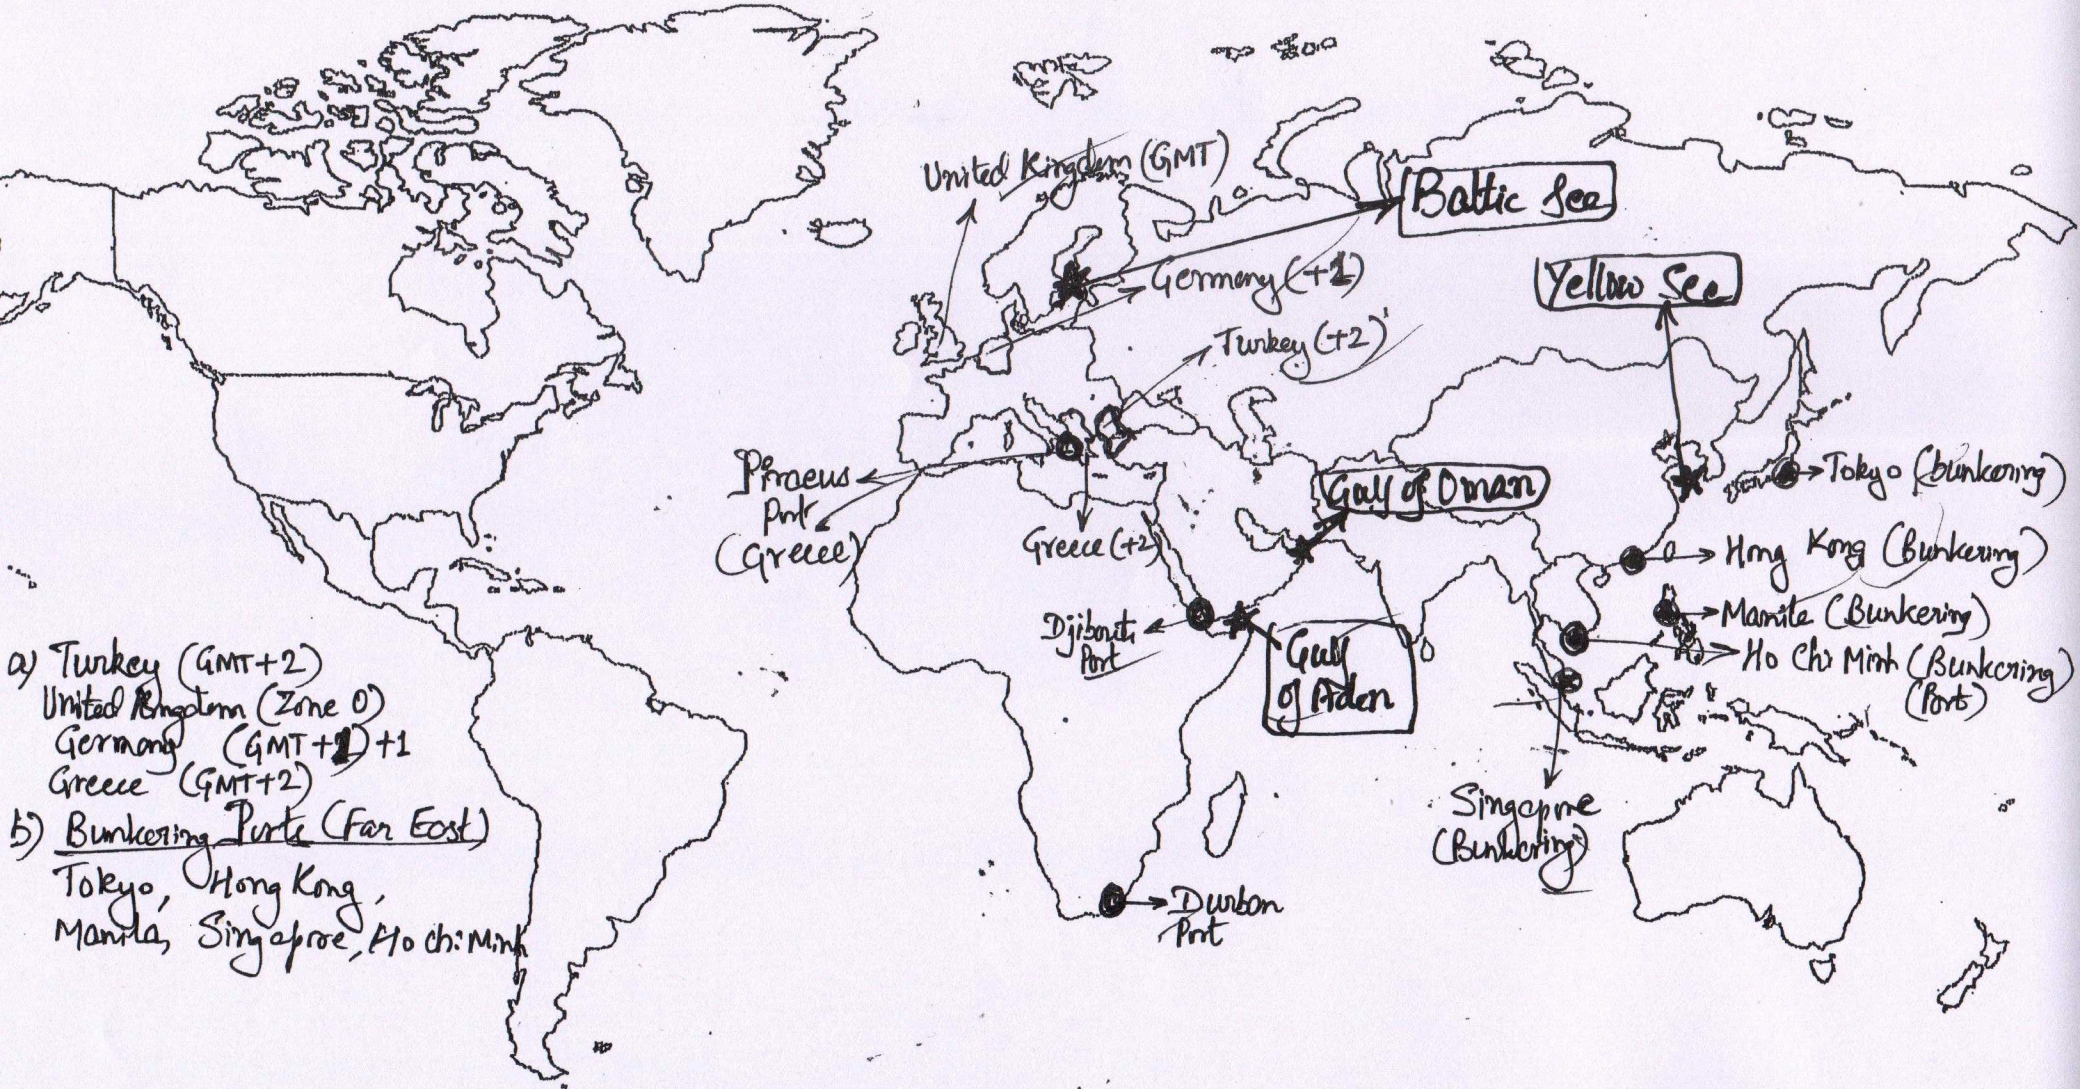 United Kingdom (GMT)
Baltic Sea
Germany (+1)
Yellow Sea
Turkey (+2)
Piraeus
Port
(Greece)
Greece (+2)
Gulf of Oman
Tokyo (bunkering)
Hong Kong (Bunkering)
Manila (Bunkering)
Ho Chi Minh (Bunkering)
(Port)
Djibouti
Port
Gulf
of Aden
Singapore
(Bunkering)
Durban
Port
a) Turkey (GMT+2)
United Kingdom (Zone 0)
Germany (GMT+1)+1
Greece (GMT+2)
b) Bunkering Ports (Far East)
Tokyo, Hong Kong,
Manila, Singapore, Ho Chi Minh